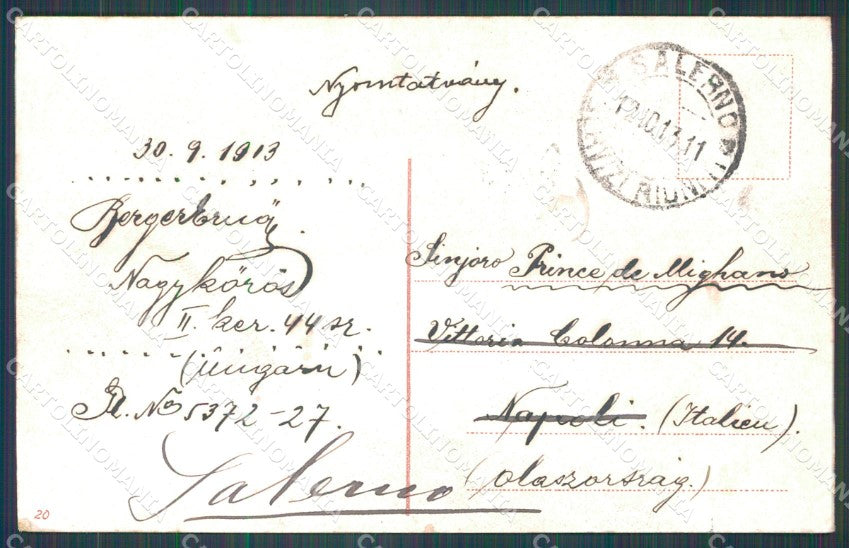 Nyomtatvány.
SALERNO
12.10.13.11
30. 9. 1913
Nagykőrös
II. ker. 44 sz.
(Ungarn)
Gl. No 5372-27.
Sinjoro Prince de Mighano
Vittoria Colonna 14.
Napoli. (Italien).
(Olaszország.)
Salerno
20
CARTOLINOMANIA